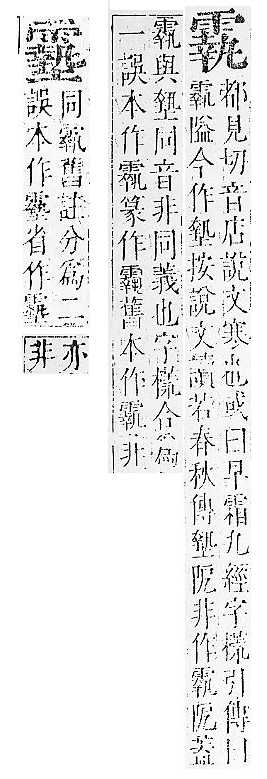 䨴
都見切音店說文寒也或曰早霜九經字㨾引傳曰
䨴隘今作墊按說文讀若春秋傳墊阨非作䨴阨葢
䨴與墊同音非同義也字㨾合為
一誤本作䨴篆作舊本作非
同䨴舊註分爲二
誤本作省作
亦
非